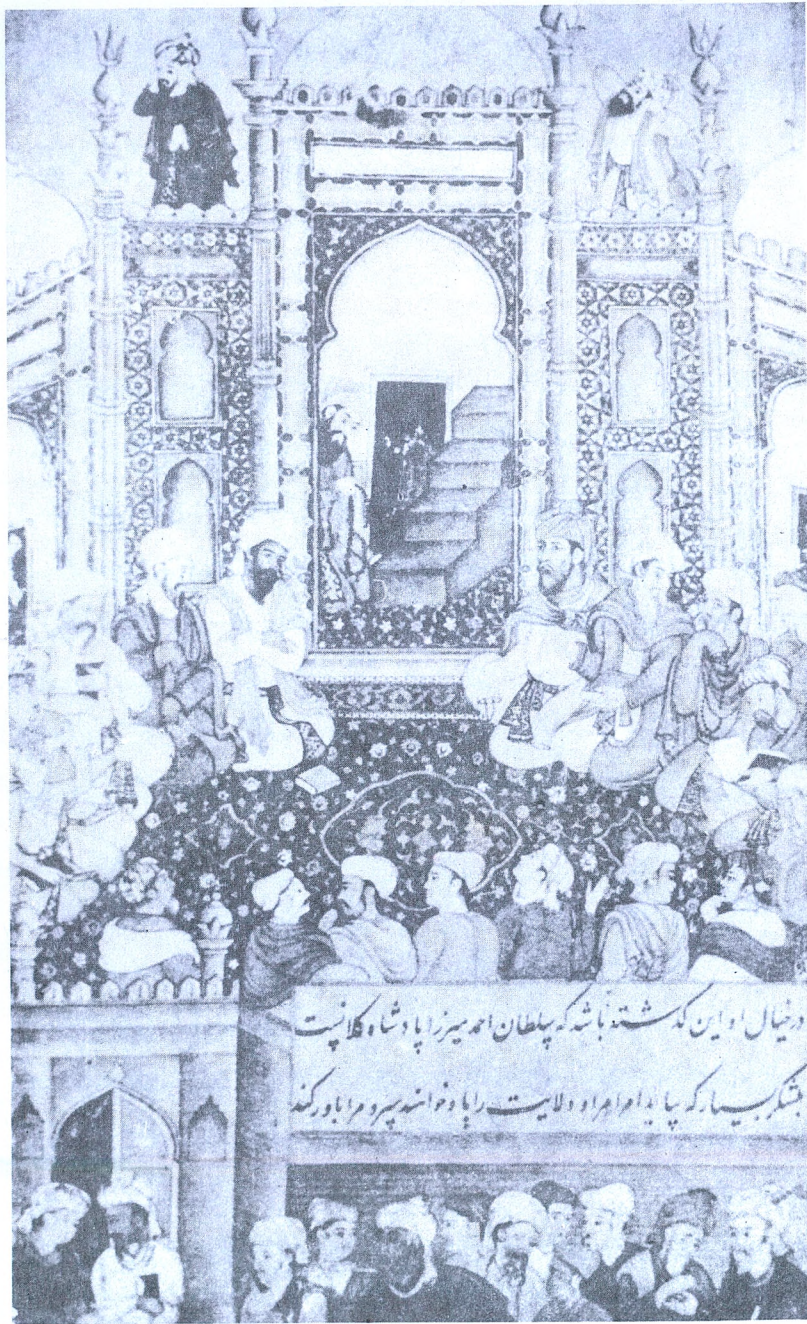 در خیال او این گذشته باشد که سلطان احمد میرزا پادشاه کلانیست
بلشکر بسیار که بیاید امرا مرا و ولایت را باو خوانند سپرد مرا باور کند